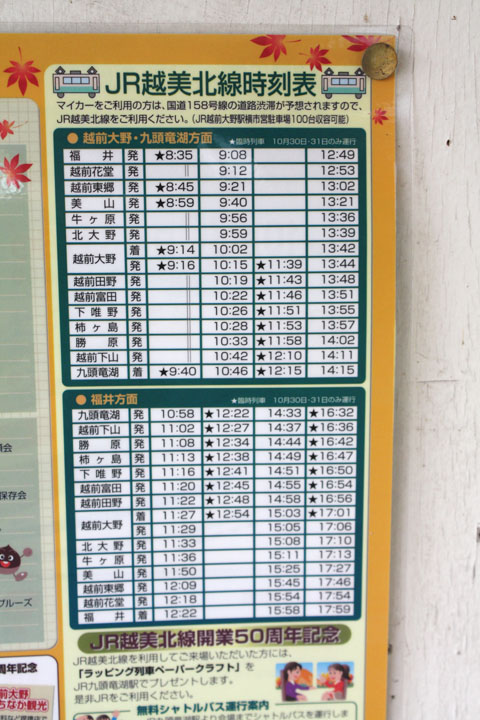 JR越美北線時刻表
マイカーをご利用の方は、国道158号線の道路渋滞が予想されますので、
JR越美北線をご利用ください。(JR越前大野駅横市営駐車場100台収容可能)
●越前大野・九頭竜湖方面 ★臨時列車 10月30日・31日のみ運行
福井 発 ★8:35 9:08 12:49
越前花堂 発 || 9:12 12:53
越前東郷 発 ★8:45 9:21 13:02
美山 発 ★8:59 9:40 13:21
牛ヶ原 発 || 9:56 13:36
北大野 発 || 9:59 13:39
越前大野 着 ★9:14 10:02 13:42
発 ★9:16 10:15 ★11:39 13:44
越前田野 発 || 10:19 ★11:43 13:48
越前富田 発 || 10:22 ★11:46 13:51
下唯野 発 || 10:26 ★11:51 13:55
柿ヶ島 発 || 10:28 ★11:53 13:57
勝原 発 || 10:33 ★11:58 14:02
越前下山 発 || 10:42 ★12:10 14:11
九頭竜湖 着 ★9:40 10:46 ★12:15 14:15
●福井方面 ★臨時列車 10月30日・31日のみ運行
九頭竜湖 発 10:58 ★12:22 14:33 ★16:32
越前下山 発 11:02 ★12:27 14:37 ★16:36
勝原 発 11:08 ★12:34 14:44 ★16:42
柿ヶ島 発 11:13 ★12:38 14:49 ★16:47
下唯野 発 11:16 ★12:41 14:51 ★16:50
越前富田 発 11:20 ★12:45 14:55 ★16:54
越前田野 発 11:22 ★12:48 14:58 ★16:56
越前大野 着 11:27 ★12:54 15:03 ★17:01
発 11:29 15:05 17:06
北大野 発 11:33 15:08 17:10
牛ヶ原 発 11:36 15:11 17:13
美山 発 11:50 15:25 17:27
越前東郷 発 12:09 15:45 17:46
越前花堂 発 12:18 15:54 17:54
福井 着 12:22 15:58 17:59
JR越美北線開業50周年記念
JR越美北線を利用してご来場いただいた方には、
「ラッピング列車ペーパークラフト」を
JR九頭竜湖駅でプレゼントします。
是非JRをご利用ください。
無料シャトルバス運行案内
保存会
ブルーズ
周年記念
越前大野